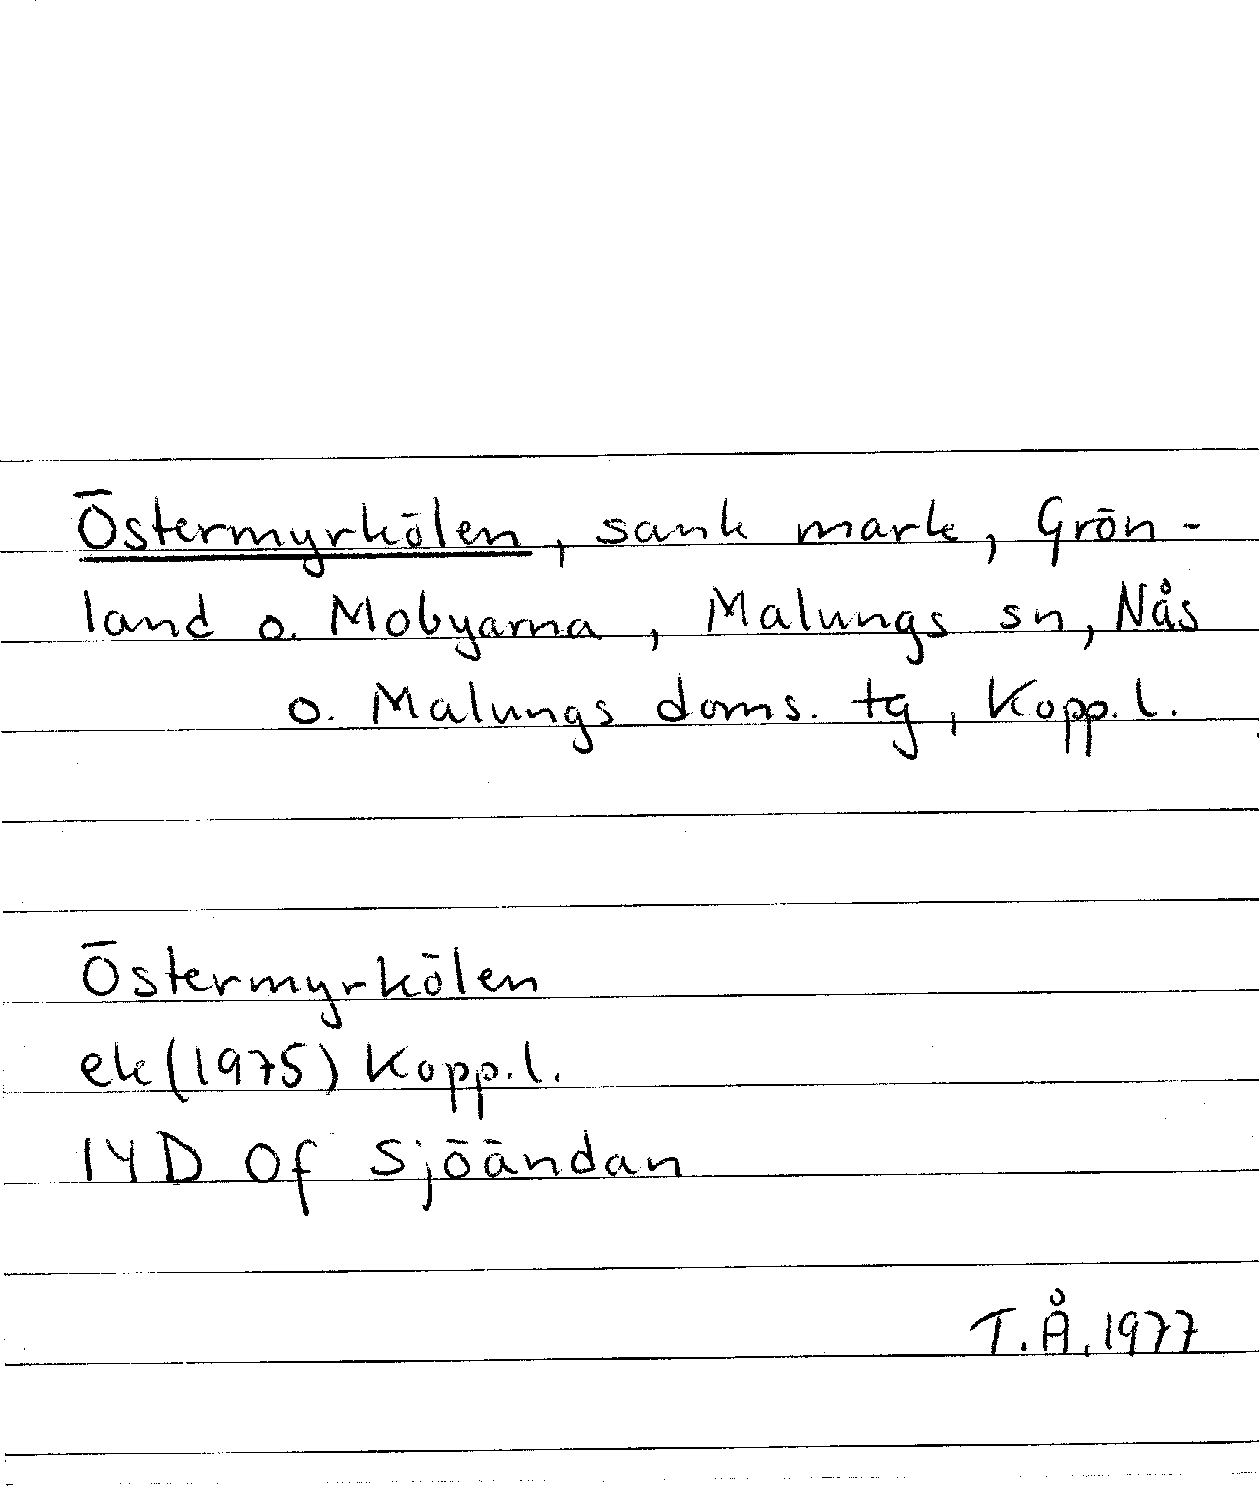 Östermyrkölen, sank mark, Grön-
land o. Mobyarna, Malungs sn, Nås
o. Malungs doms. tg, Kopp. l.
Östermyrkölen
ek (1975) Kopp. l.
14D 0f Sjöändan
T. Å. 1977